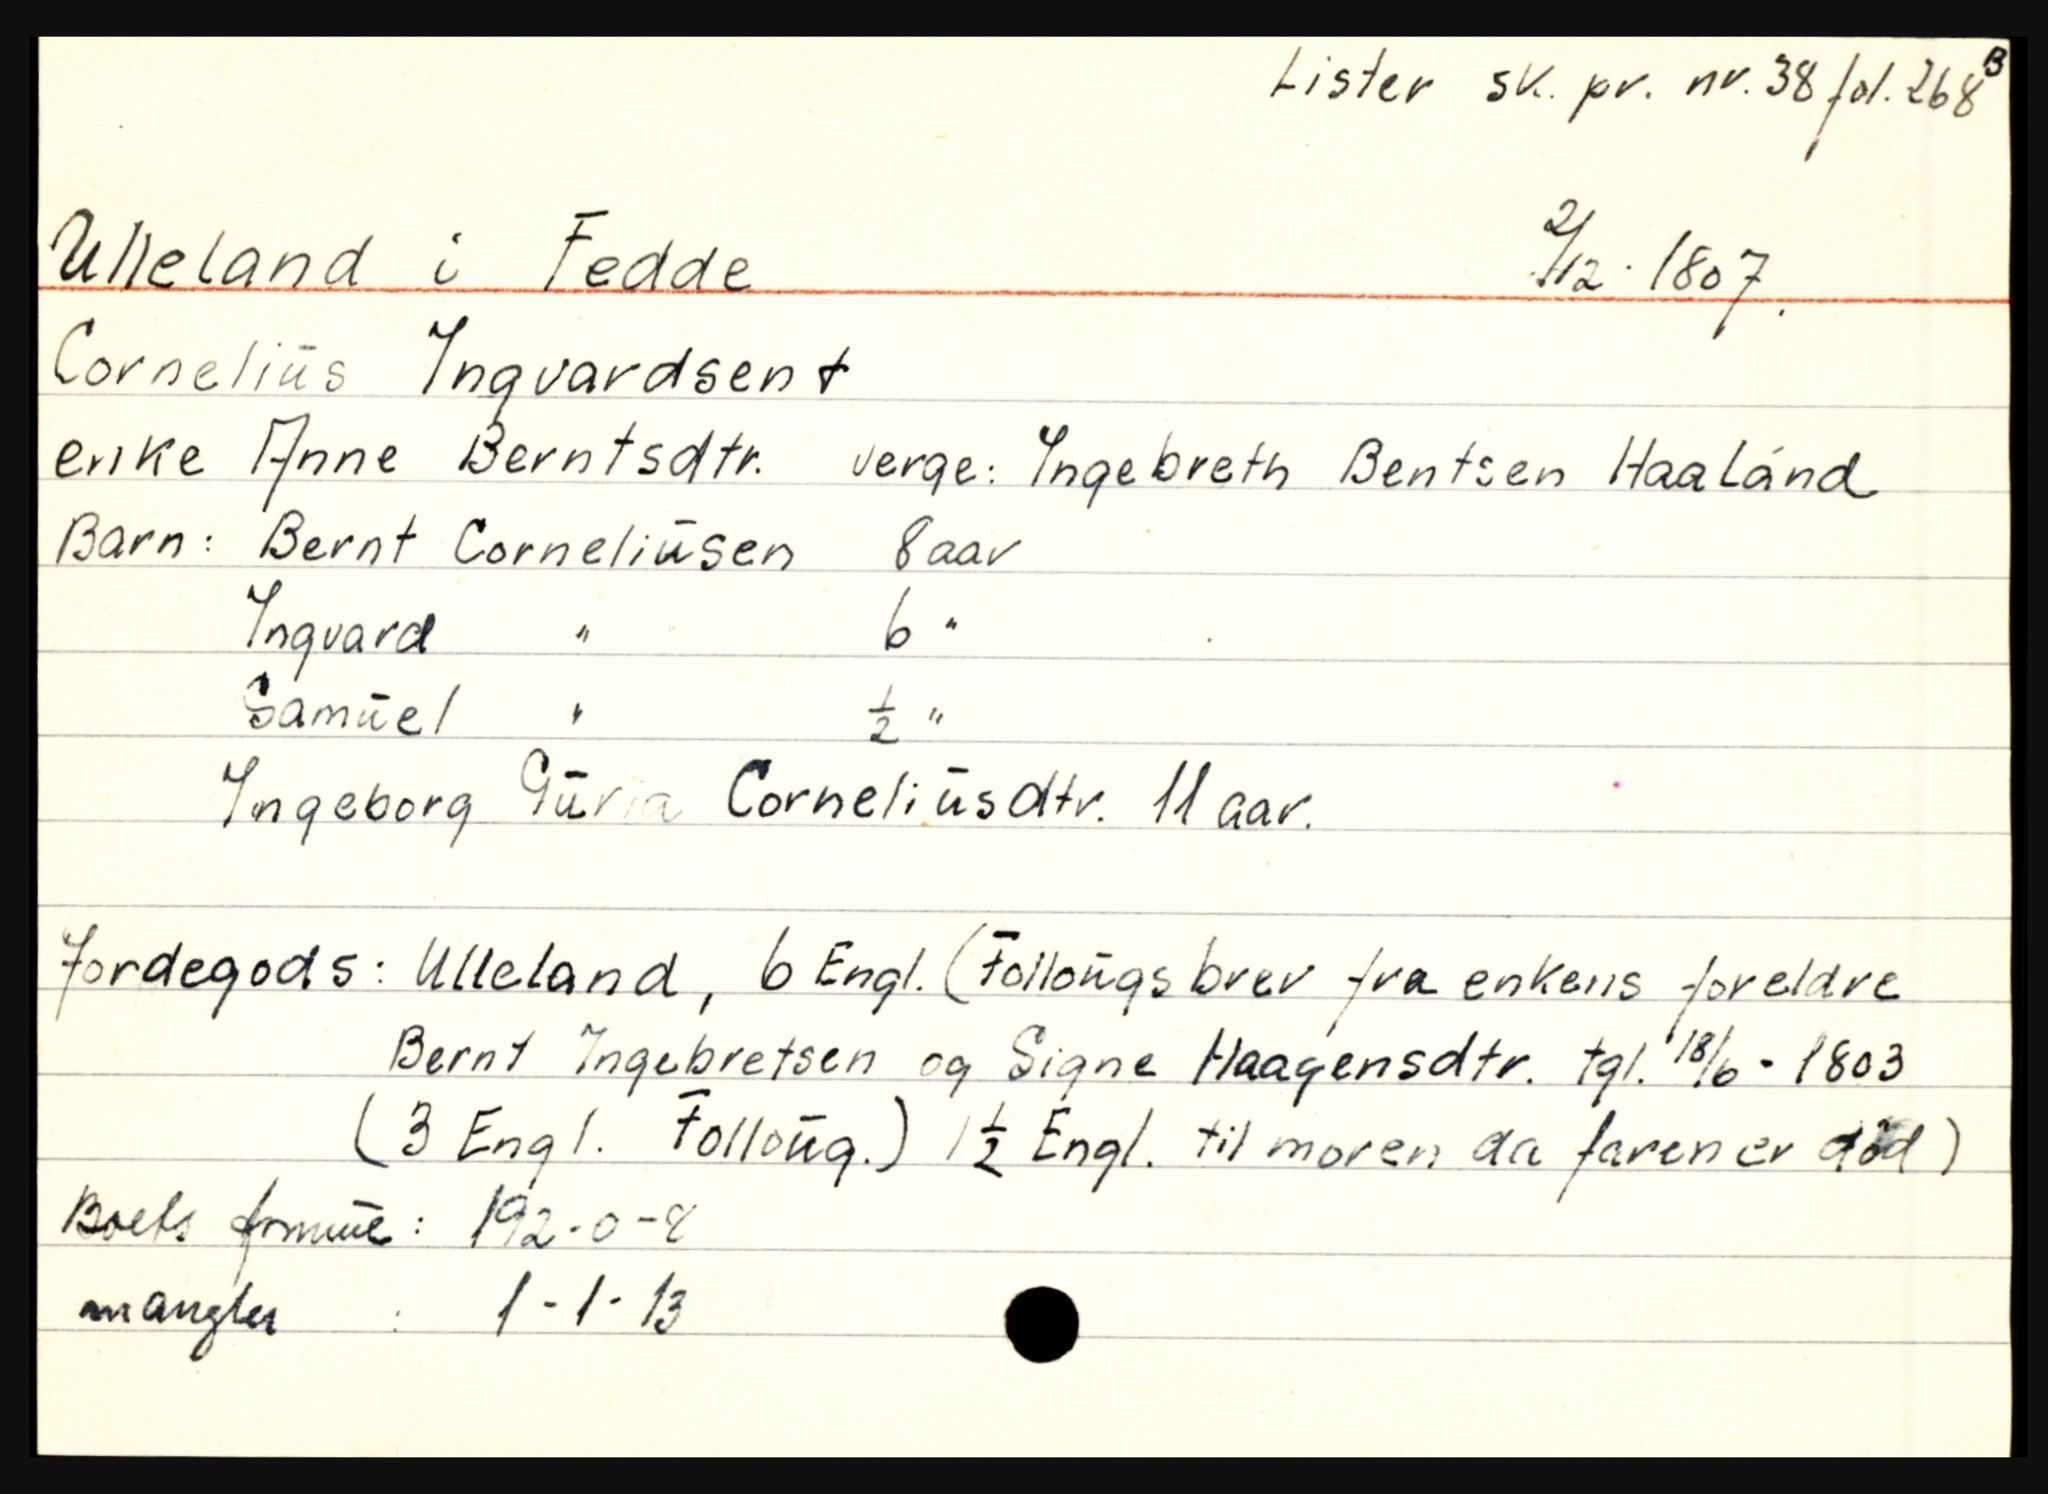 Lister sk. pr. nr. 38 fol. 268 B
Ulleland i Fedde 2/12 · 1807.
Corneliūs Ingvardsen †
enke Anne Berntsdtr. verge: Ingebreth Bentsen Haaland
Barn: Bernt Corneliūsen 8 aar
Ingvard " 6 "
Samūel " 1/2 "
Ingeborg Gūria Corneliūsdtr. 11 aar.
Jordegods: Ulleland, 6 Engl. (Folloūgsbrev fra enkens foreldre
Bernt Ingebretsen og Signe Haagensdtr. tgl. 18/6 - 1803
(3 Engl. Folloūg.) 1 1/2 Engl. til moren da faren er död)
Boets formūe: 192-0-8
mangler : 1-1-13